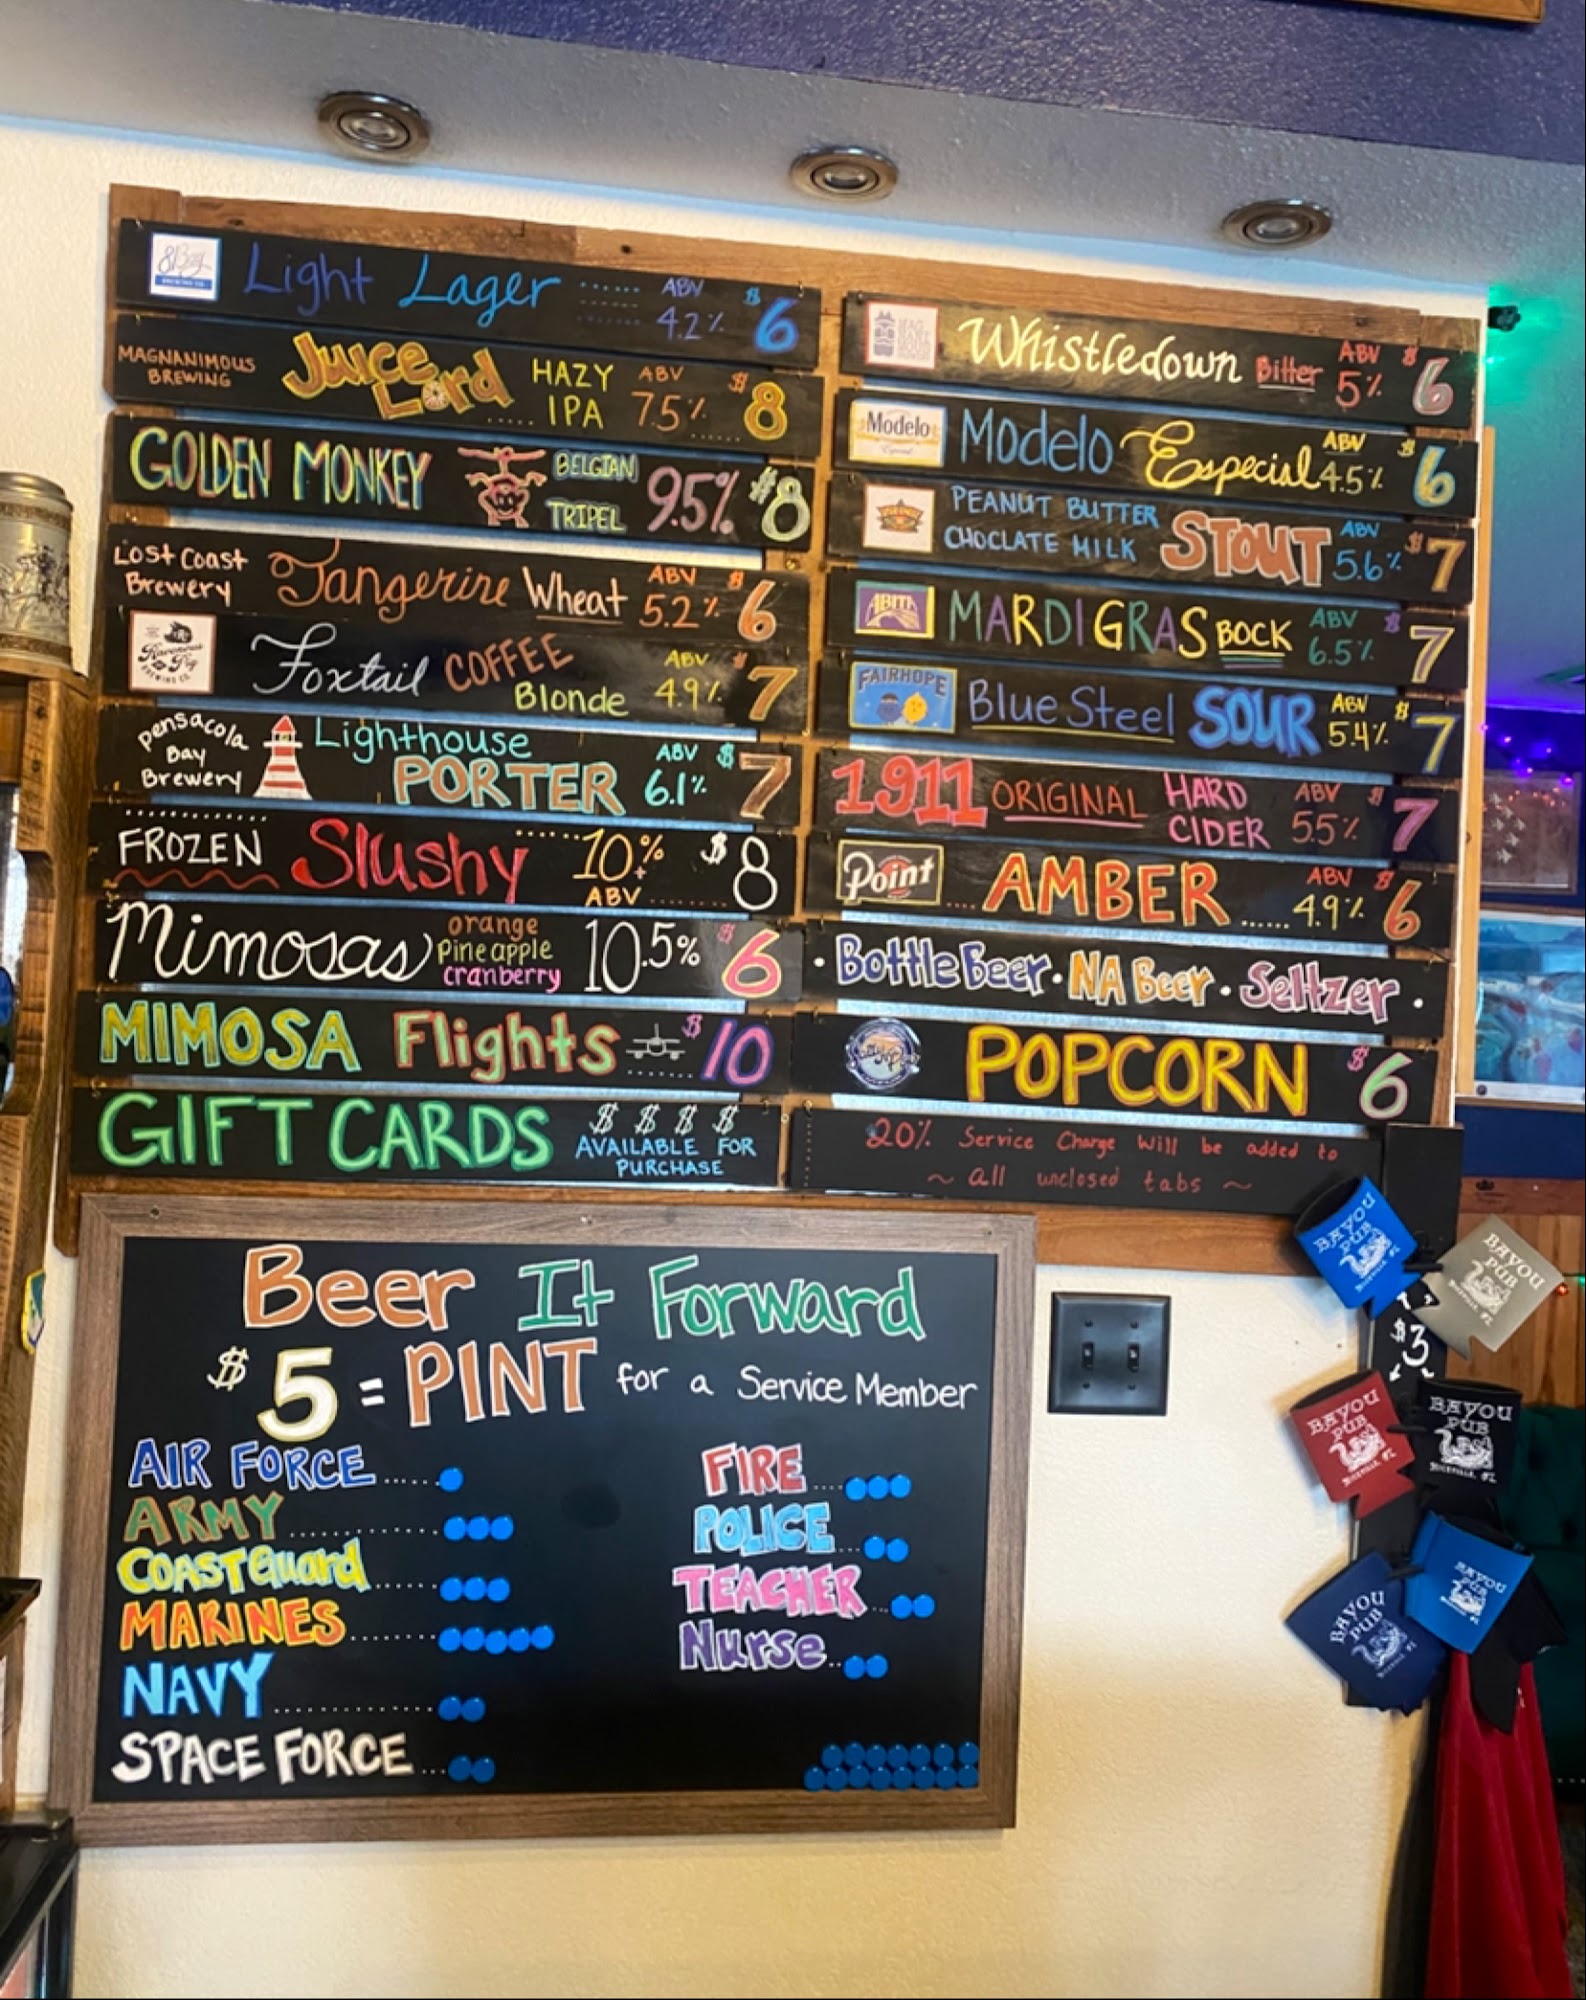 8Bay
BREWING CO.
Light Lager ABV 4.2% $6
MAGNANIMOUS BREWING Juice Lord HAZY IPA ABV 7.5% $8
GOLDEN MONKEY BELGIAN TRIPEL 9.5% $8
Lost Coast Brewery Tangerine Wheat ABV 5.2% $6
Ravenous Pig
BREWING CO.
Foxtail COFFEE Blonde ABV 4.9% $7
Pensacola Bay Brewery Lighthouse PORTER ABV 6.1% $7
FROZEN Slushy 10%+ ABV $8
Mimosas orange pineapple cranberry 10.5% $6
MIMOSA Flights $10
GIFT CARDS $ $ $ $ AVAILABLE FOR PURCHASE
Whistledown Bitter ABV 5% $6
Modelo
Especial
Modelo Especial ABV 4.5% $6
PEANUT BUTTER CHOCLATE MILK STOUT ABV 5.6% $7
ABITA
MARDI GRAS BOCK ABV 6.5% $7
FAIRHOPE
Blue Steel SOUR ABV 5.4% $7
1911 ORIGINAL HARD CIDER ABV 5.5% $7
Point AMBER ABV 4.9% $6
• Bottle Beer • NA Beer • Seltzer •
POPCORN $6
20% Service Charge will be added to
~ all unclosed tabs ~
Beer It Forward
$5 = PINT for a Service Member
AIR FORCE
ARMY
COAST Guard
MARINES
NAVY
SPACE FORCE
FIRE
POLICE
TEACHER
Nurse
BAYOU
PUB
NICEVILLE, FL
BAYOU
PUB
NICEVILLE, FL
$3
BAYOU
PUB
NICEVILLE, FL
BAYOU
PUB
NICEVILLE, FL
BAYOU
PUB
NICEVILLE, FL
BAYOU
PUB
NICEVILLE, FL